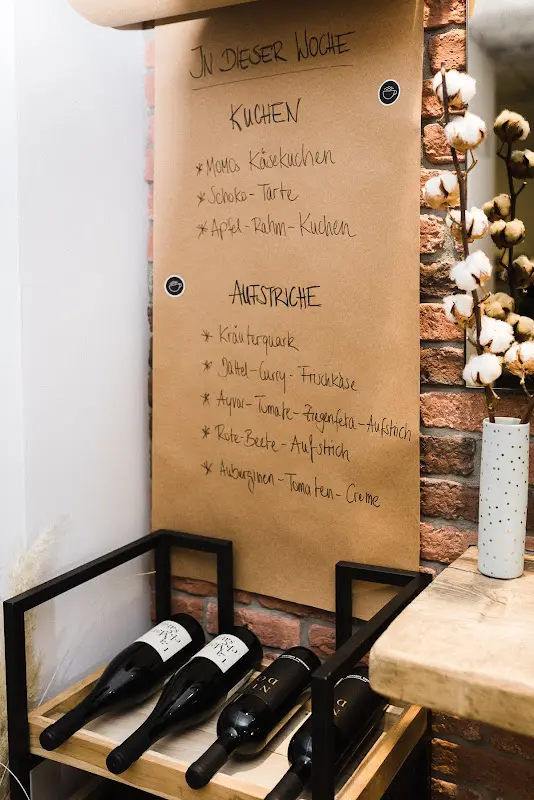 IN DIESER WOCHE
KUCHEN
* MOMOS Käsekuchen
* Schoko-Tarte
* Apfel-Rahm-Kuchen
AUFSTRICHE
* Kräuterquark
* Dattel-Curry-Frischkäse
* Ayvar-Tomate-Ziegenfeta-Aufstrich
* Rote-Beete-Aufstrich
* Auberginen-Tomaten-Creme